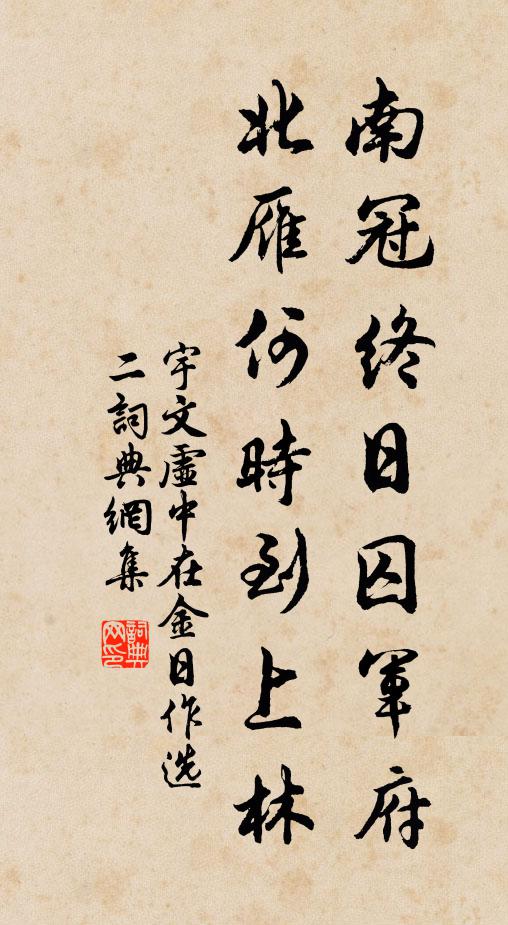 南冠終日囚軍府
北雁何時到上林
宇文虛中在金日作选
二詞典網集
詞典网印